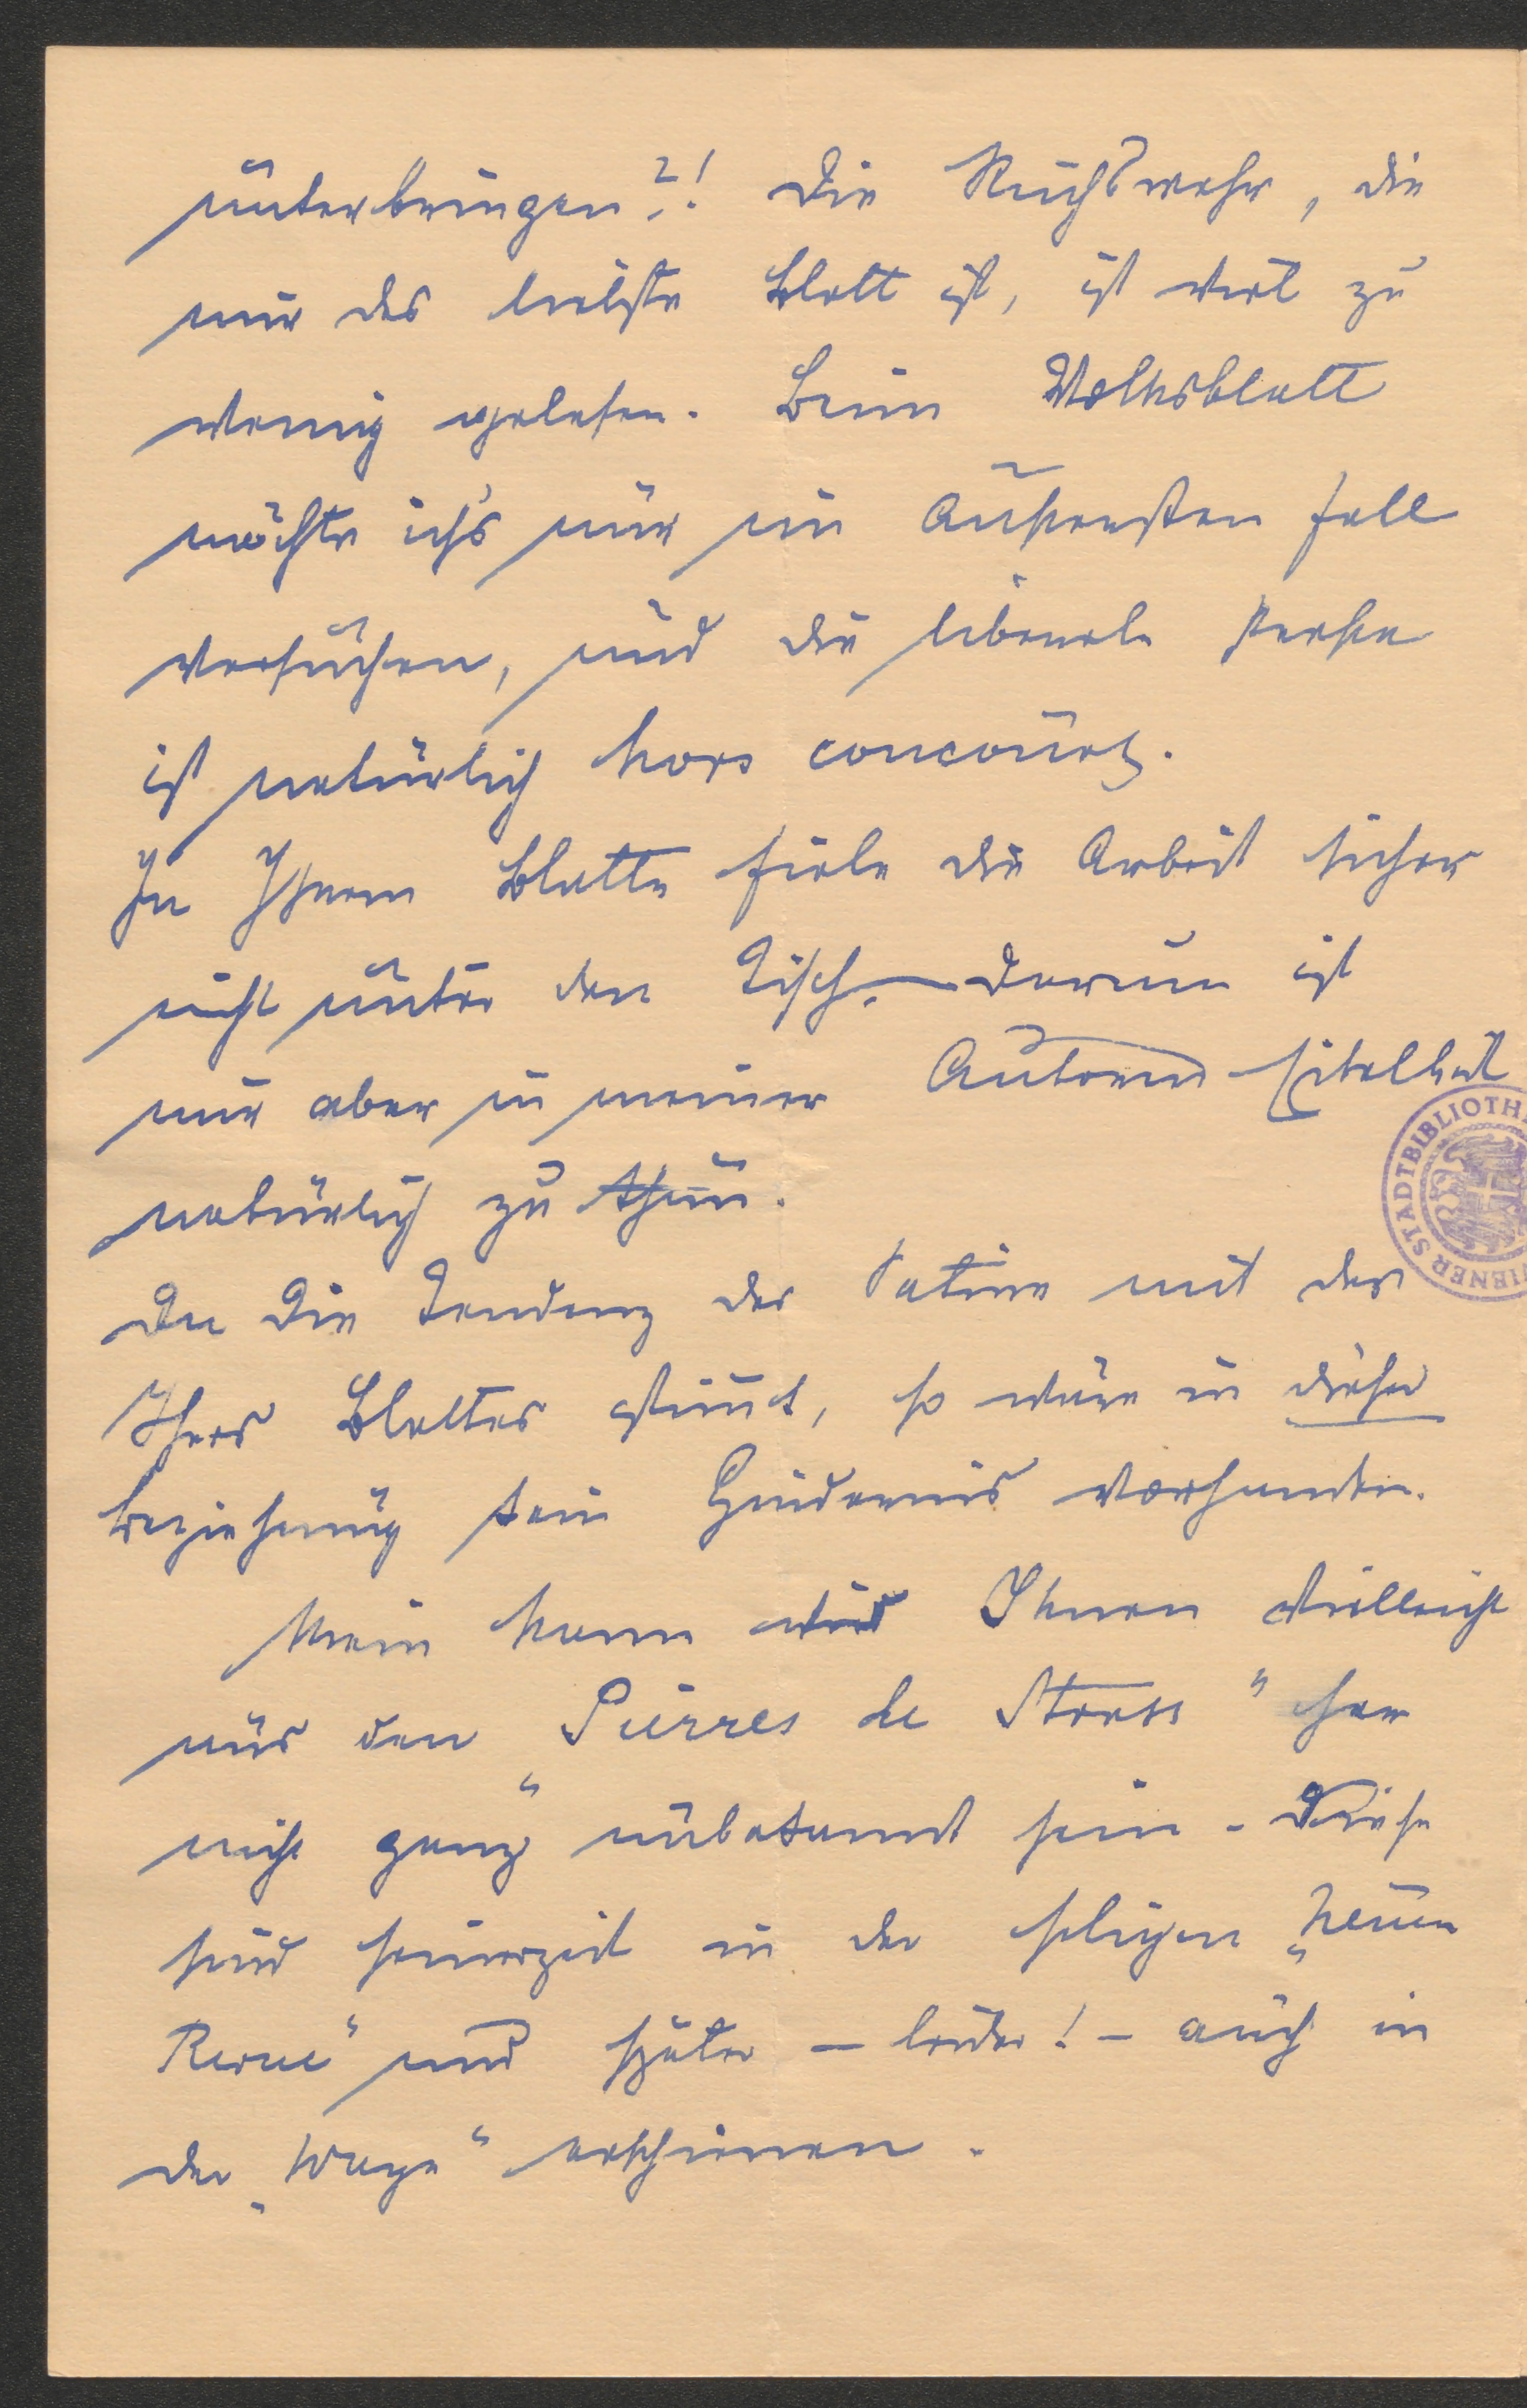 unterbringen?! Die Reichswehr, die
mir das liebste Blatt ist, ist viel zu
wenig gelesen. Beim Volksblatt
möchte ich's nur im äußersten Fall
versuchen, und die liberale Presse
ist natürlich hors concours.
In Ihrem Blatte fiele die Arbeit sicher
nicht unter den Tisch. – Darum ist
mir aber in meiner Autoren-Eitelkeit
natürlich zu thun.
Da die Tendenz der Satire mit der
Ihres Blattes stimt, so wäre in dieser
Beziehung kein Hindernis vorhanden.
Mein Name wird Ihnen vielleicht
aus den „Pierres de Strass" her
nicht ganz unbekannt sein. Diese
sind seinerzeit in der seligen „Neuen
Revue" und später – leider! – auch in
der „Wage" erschienen.
WIENER STADTBIBLIOTH